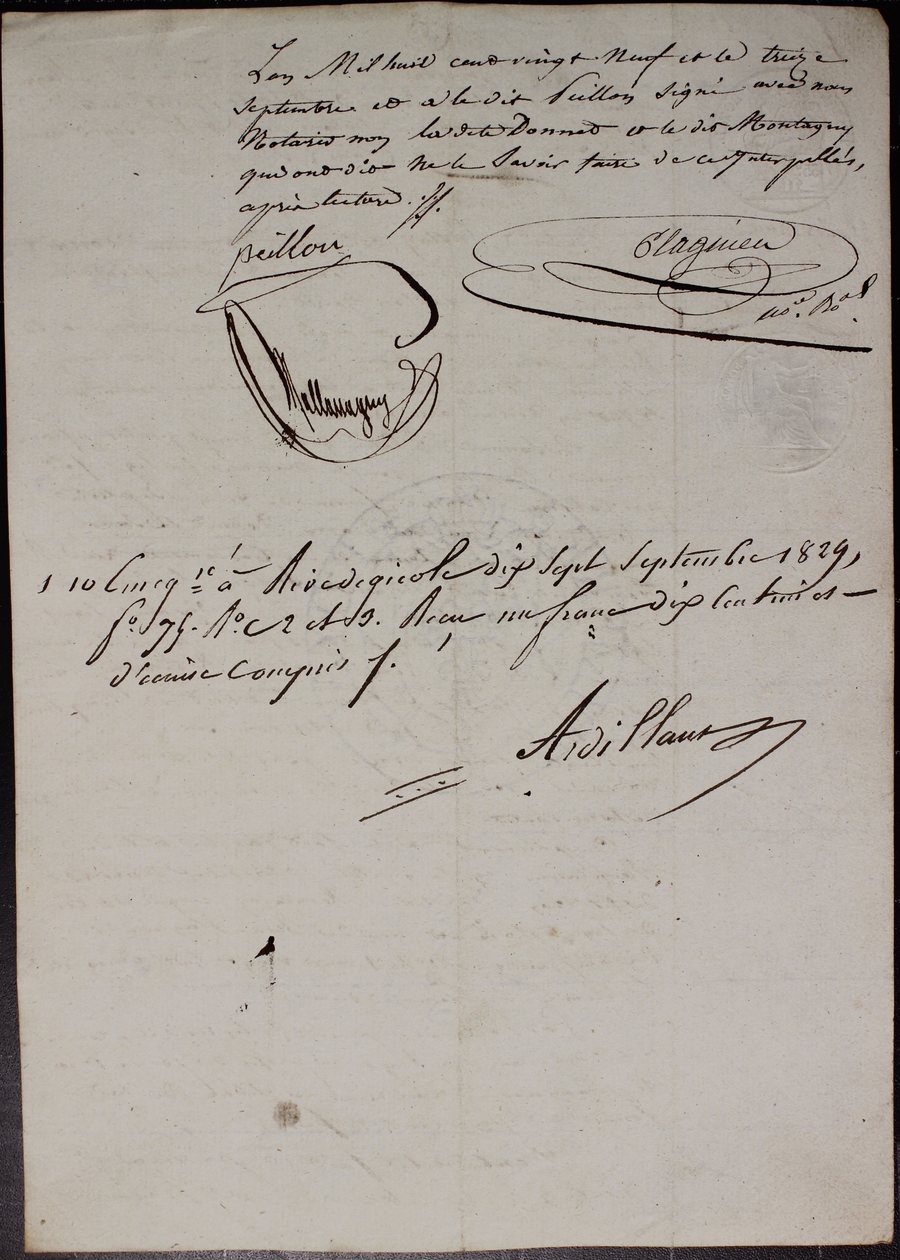 L'an Mil huit cent vingt Neuf et le treize
septembre et a le dit Peillon signé avec nous
Notaires non la dete Donned et le dit Montagny
qui ont dit Ne le Savoir faire de ce Interpellés,
après lecture. //.
peillon
Flagnieu
no.e Ro.al
Mallomaguy
1 10 Enreg re à Rivedegicole dix sept septembre 1829,
fo. 75. Ro. C 2 et 3. Recu un franc dix Centimes
d'ecime Compris f.
Ardillant